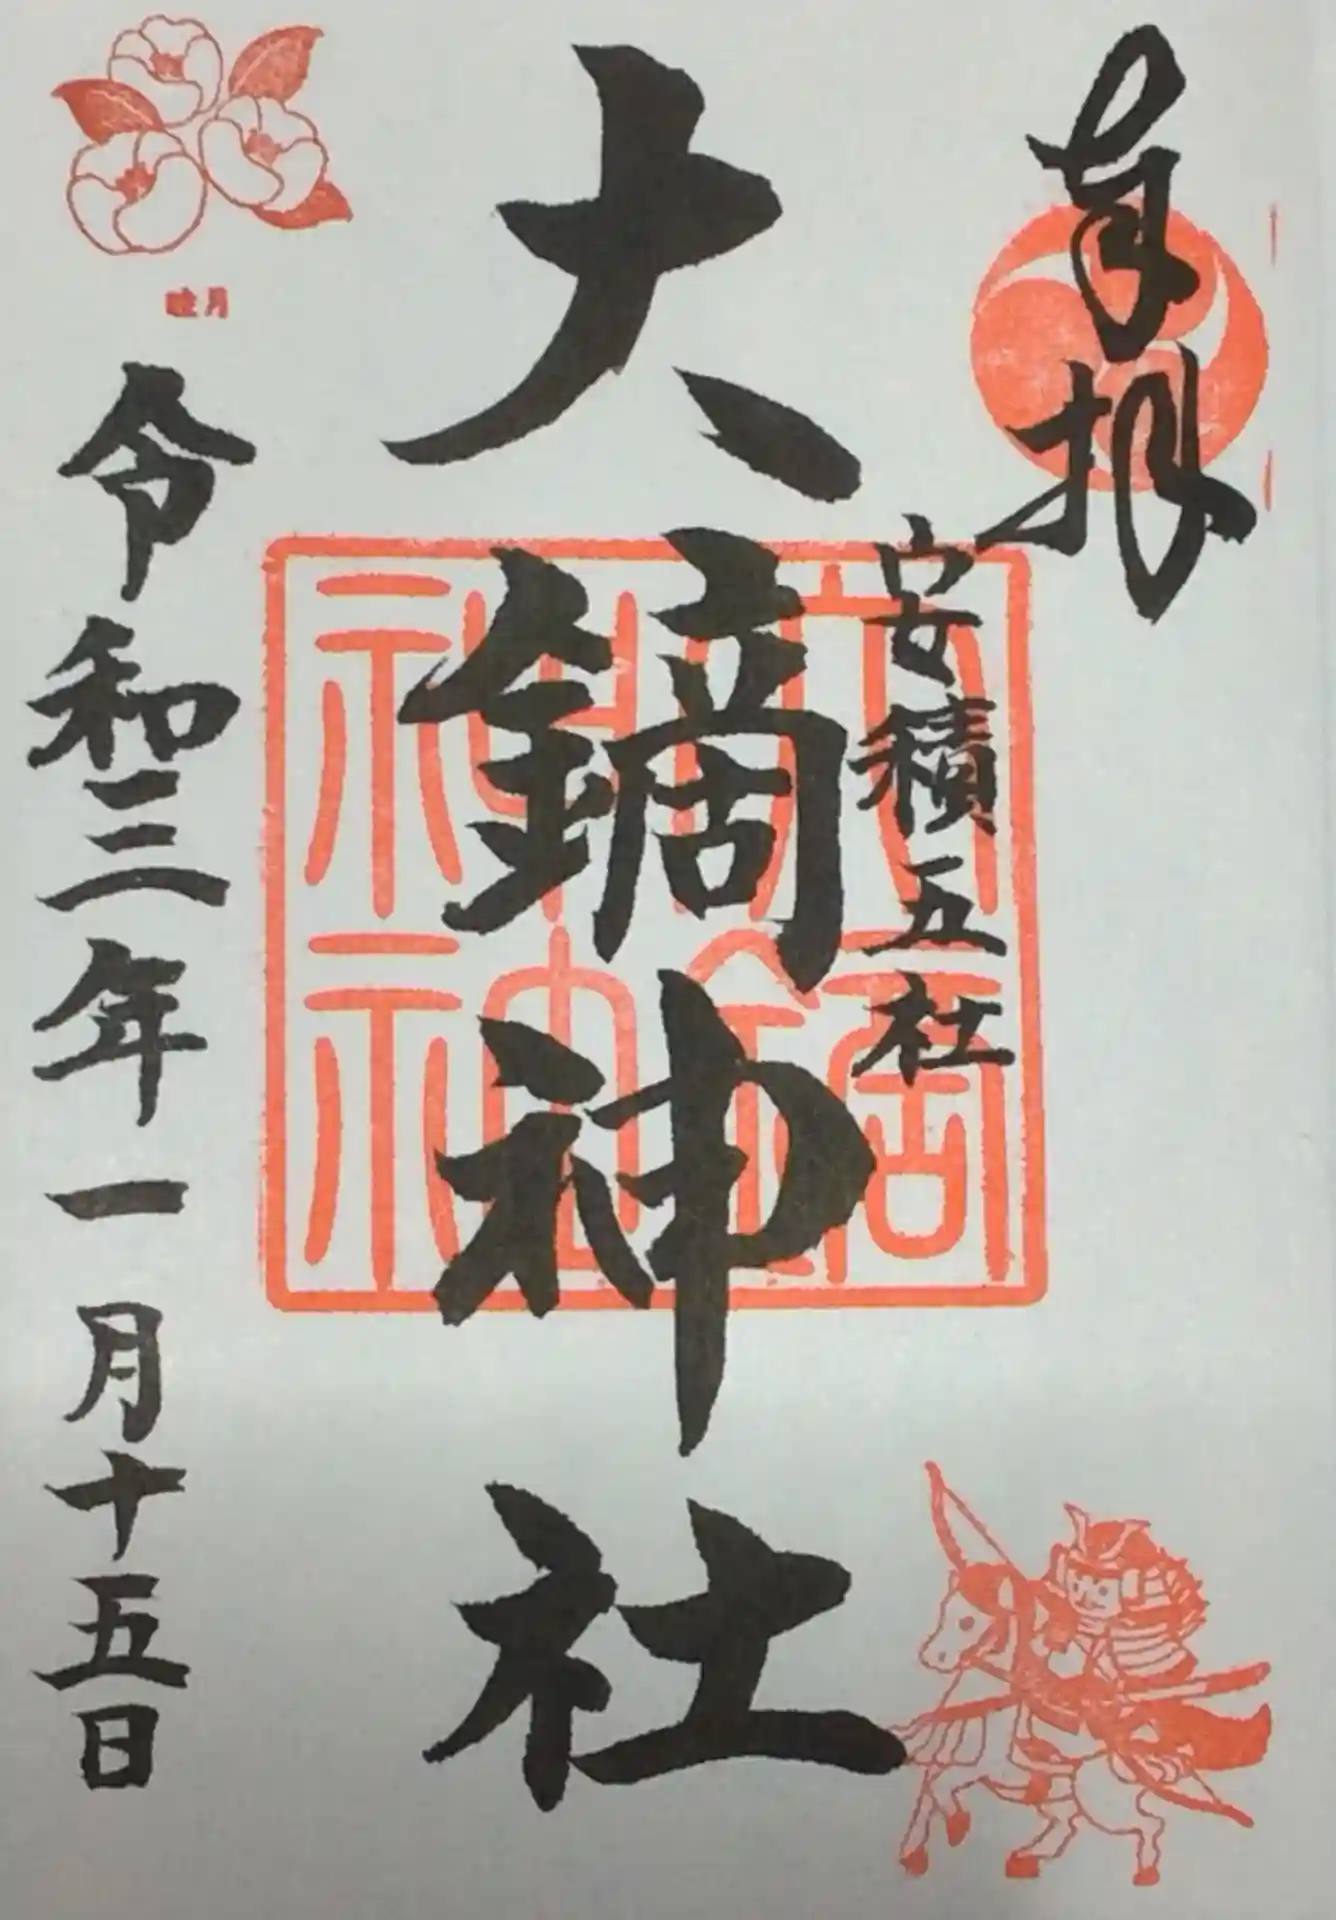 奉拝
安積五社
大鏑神社
大鏑神社
睦月
令和三年一月十五日